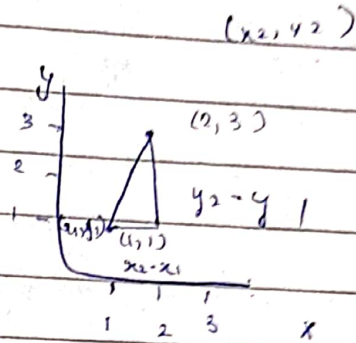 (x2, y2)
y
3
(2, 3)
2
y2 - y1
1
(x1, y1)
(1, 1)
x2 - x1
1 2 3 x